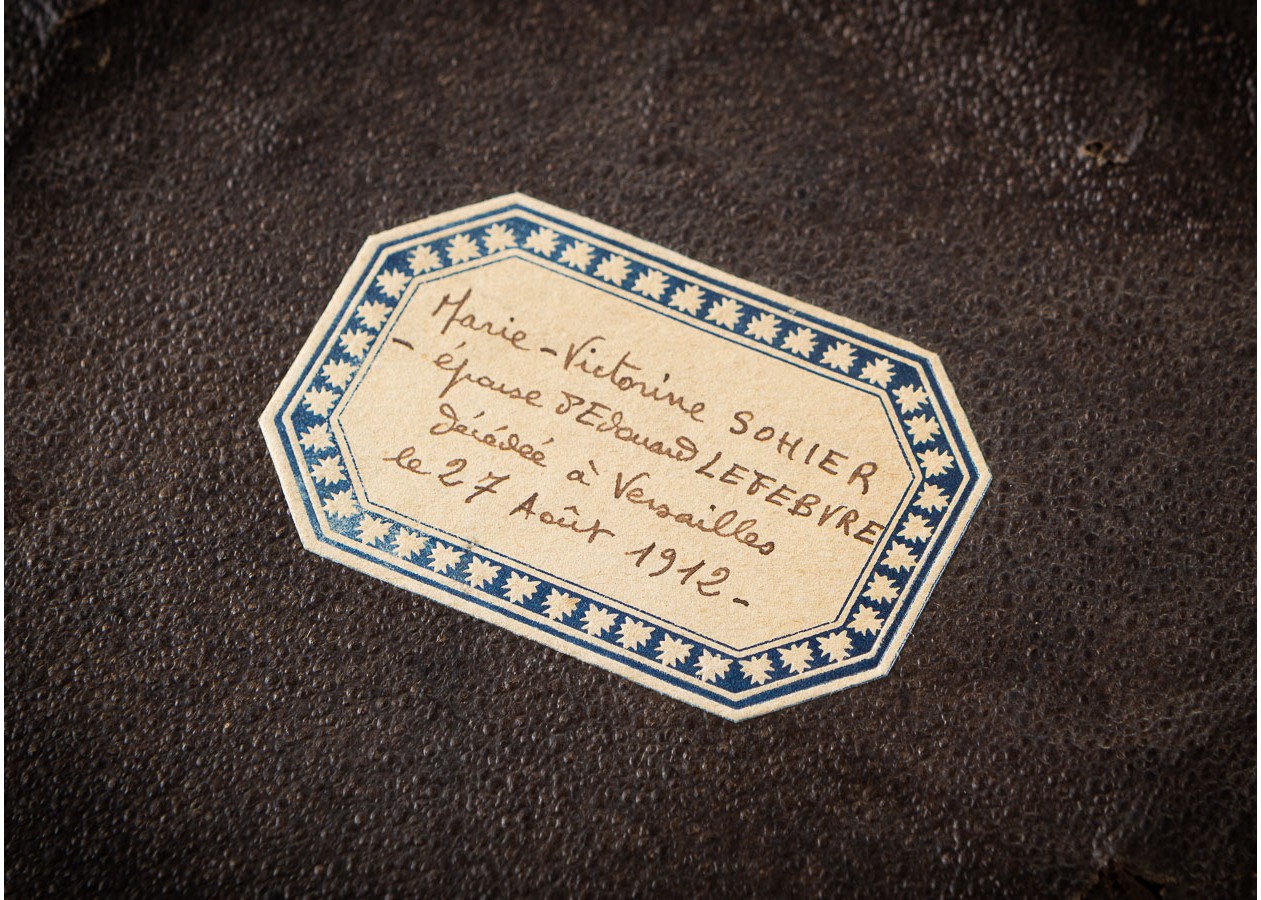 Marie-Victorine SOHIER
- épouse d'Edouard LEFEBVRE
décédée à Versailles
le 27 Août 1912-